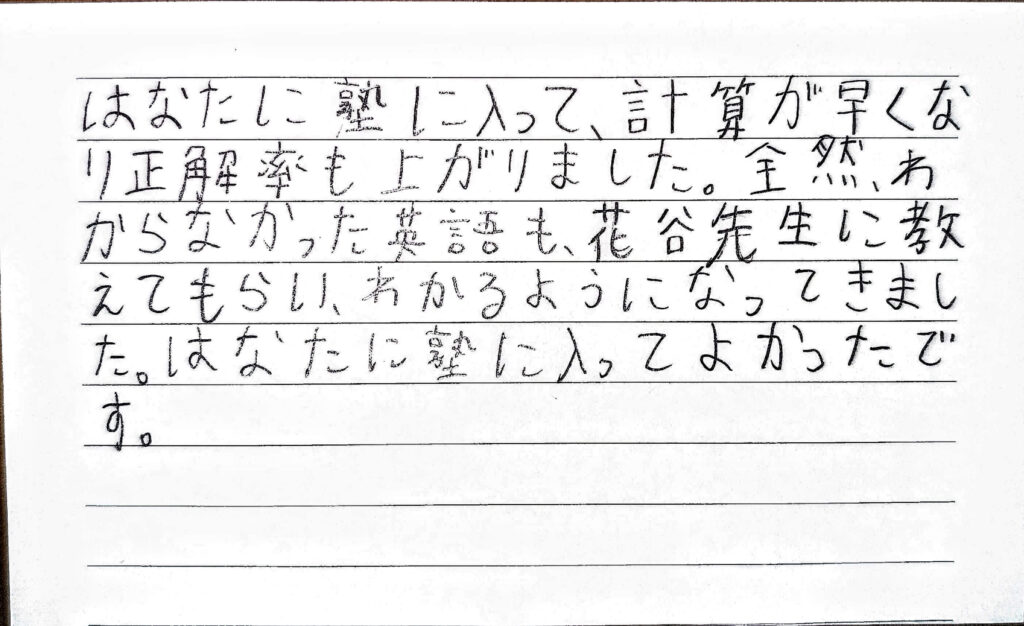 はなたに塾に入って、計算が早くな
り正解率も上がりました。全然、わ
からなかった英語も、花谷先生に教
えてもらい、わかるようになってきまし
た。はなたに塾に入ってよかったで
す。